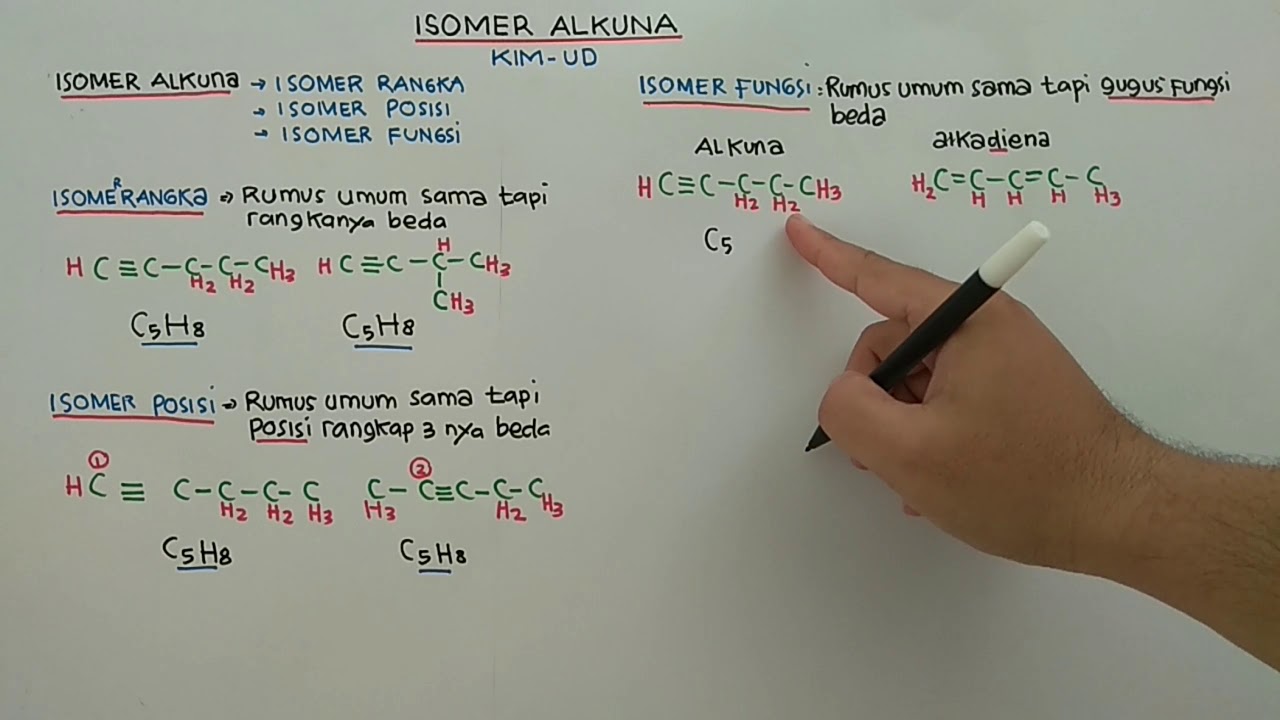 ISOMER ALKUNA
KIM-UD
ISOMER ALKUNA → ISOMER RANGKA
→ ISOMER POSISI
→ ISOMER FUNGSI
ISOMER RANGKA → Rumus umum sama tapi
rangkanya beda
HC≡C-C-C-CH3 HC≡C-C-CH3
H2 H2 H
CH3
C5H8 C5H8
ISOMER POSISI → Rumus umum sama tapi
posisi rangkap 3 nya beda
① ②
HC≡ C-C-C-C C-C≡C-C-C
H2 H2 H3 H3 H2 H3
C5H8 C5H8
ISOMER FUNGSI : Rumus umum sama tapi gugus fungsi
beda
ALKUNA alkadiena
HC≡C-C-C-CH3 H2C=C-C=C-C
H2 H2 H H H H3
C5